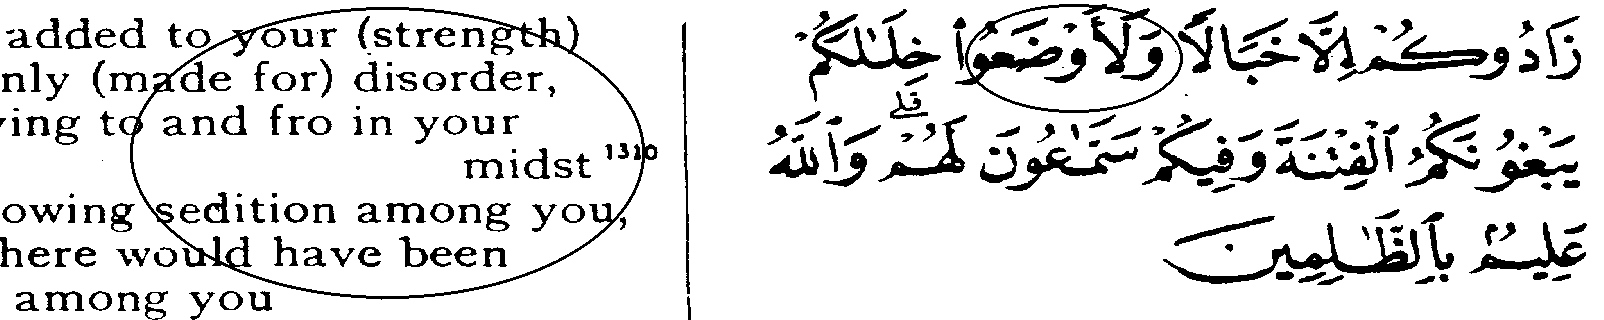 added to your (strength)
nly (made for) disorder,
ing to and fro in your
midst 1310
owing sedition among you,
here would have been
among you
زَادُوكُمْ إِلَّا خَبَالًا وَلَأَوْضَعُوا۟ خِلَـٰلَكُمْ
يَبْغُونَكُمُ ٱلْفِتْنَةَ وَفِيكُمْ سَمَّـٰعُونَ لَهُمْ ۗ وَٱللَّهُ
عَلِيمٌۢ بِٱلظَّـٰلِمِينَ